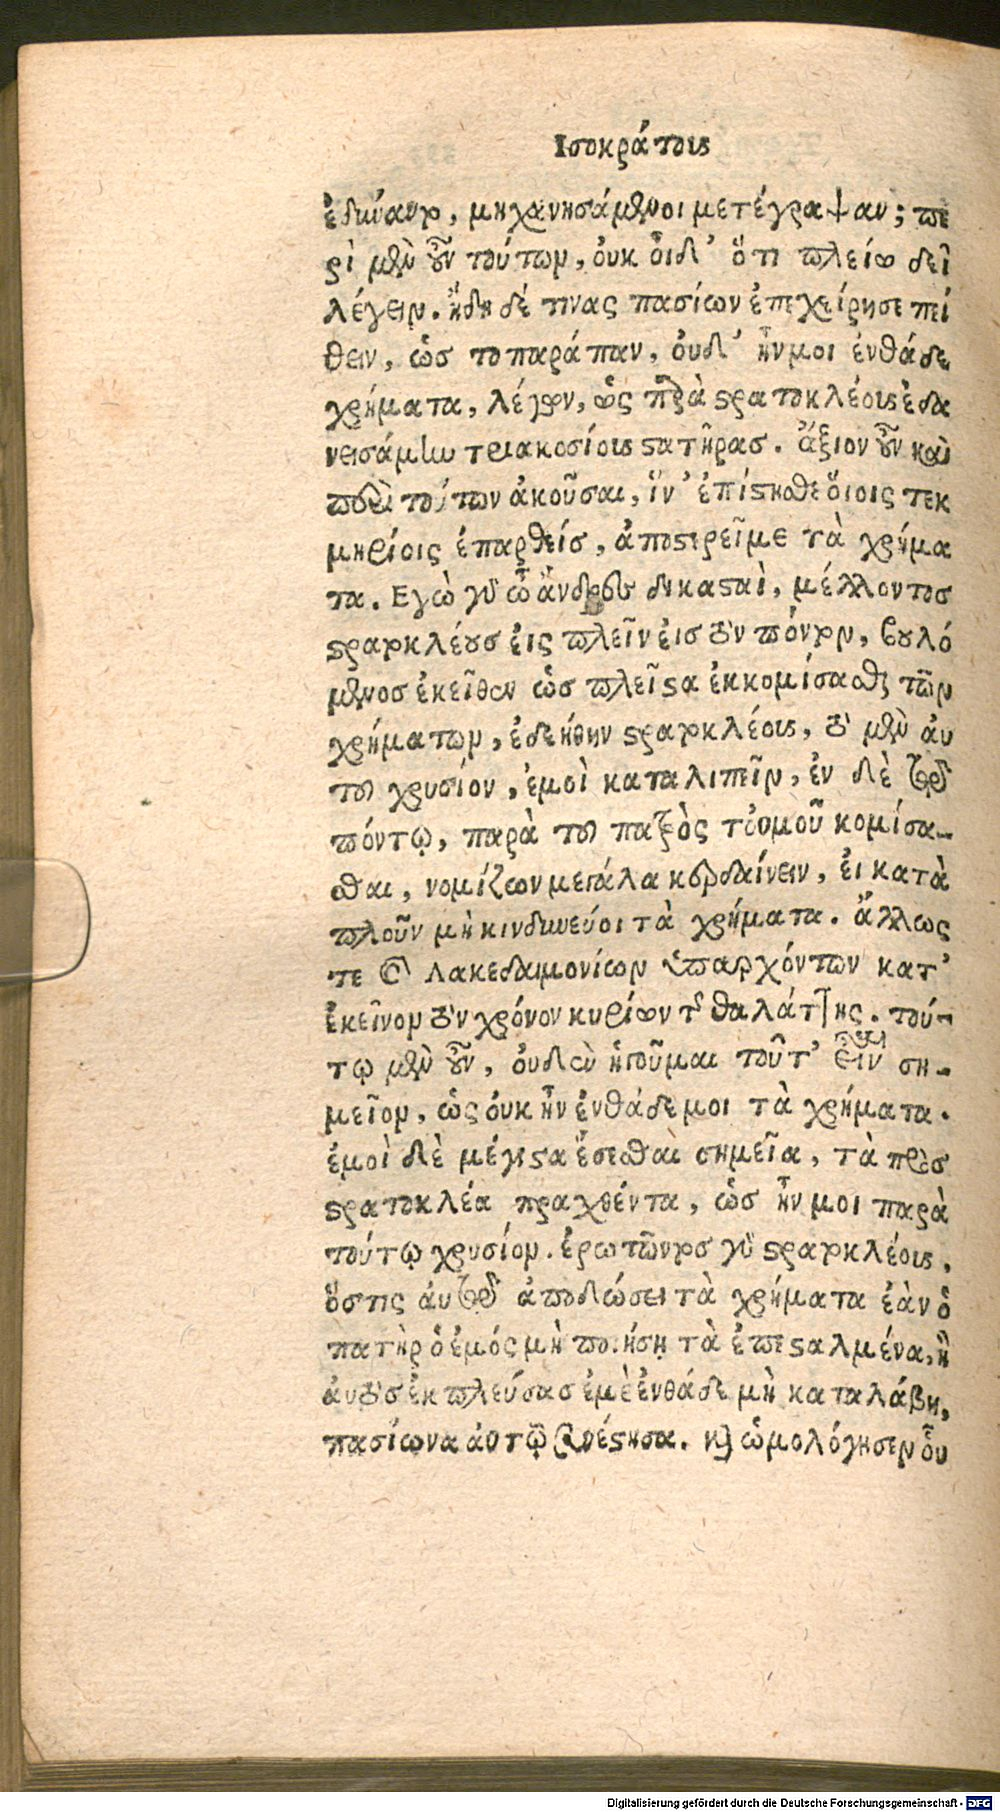 Ισοκράτους
ἐδύναντο, μηχανησάμενοι μετέγραψαν; πε
ρὶ μὲν οὖν τούτων, οὐκ οἶδ’ ὅτι πλείω δεῖ
λέγειν. ἤδη δέ τινας πασίων ἐπεχείρησε πεί
θειν, ὡς τοπαράπαν, οὐδ’ ἦν μοι ἐνθάδε
χρήματα, λέγων, ὡς παρὰ στρατοκλέους ἐδα
νεισάμην τριακοσίους στατῆρας. ἄξιον οὖν καὶ
περὶ τούτων ἀκοῦσαι, ἵν’ ἐπίστησθε ὁίοις τεκ
μηρίοις ἐπαρθεὶς, ἀποστερεῖ με τὰ χρήμα
τα. Εγὼ γὰρ ὦ ἄνδρες δικασταὶ, μέλλοντος
στρατοκλέους ἐις πλεῖν ἐις τὸν πόντον, βουλό
μενος ἐκεῖθεν ὡς πλεῖστα ἐκκομίσασθαι τῶν
χρημάτων, ἐδεήθην στρατοκλέους, τὸ μὲν ἀυ
τοῦ χρυσίον, ἐμοὶ καταλιπεῖν, ἐν δὲ τῷ
πόντῳ, παρὰ τοῦ πατρὸς τοὐμοῦ κομίσα-
σθαι, νομίζων μεγάλα κερδαίνειν, ἐι κατὰ
πλοῦν μὴ κινδυνεύοι τὰ χρήματα. ἄλλως
τε καὶ Λακεδαιμονίων ὑπαρχόντων κατ’
ἐκεῖνον τὸν χρόνον κυρίων τῆς θαλάττης. τού-
τῳ μὲν οὖν, οὐδὲν ἡγοῦμαι τοῦτ’ εἶναι ση-
μεῖον, ὡς οὐκ ἦν ἐνθάδε μοι τὰ χρήματα.
ἐμοὶ δὲ μέγιστα ἔσεσθαι σημεῖα, τὰ πρὸς
στρατοκλέα πραχθέντα, ὡς ἦν μοι παρὰ
τούτῳ χρυσίον. ἐρωτῶντος γὰρ στρατοκλέους,
ὅστις ἀυτῷ ἀποδώσει τὰ χρήματα ἐὰν ὁ
πατὴρ ὁ ἐμός μὴ ποιήσῃ τὰ ἐπεσταλμένα, ἢ
ἀυτὸς ἐκπλεύσας ἐμὲ ἐνθάδε μὴ καταλάβῃ,
πασίωνα ἀυτῷ συνέστησα. καὶ ὡμολόγησεν οὗ
Digitalisierung gefördert durch die Deutsche Forschungsgemeinschaft - DFG